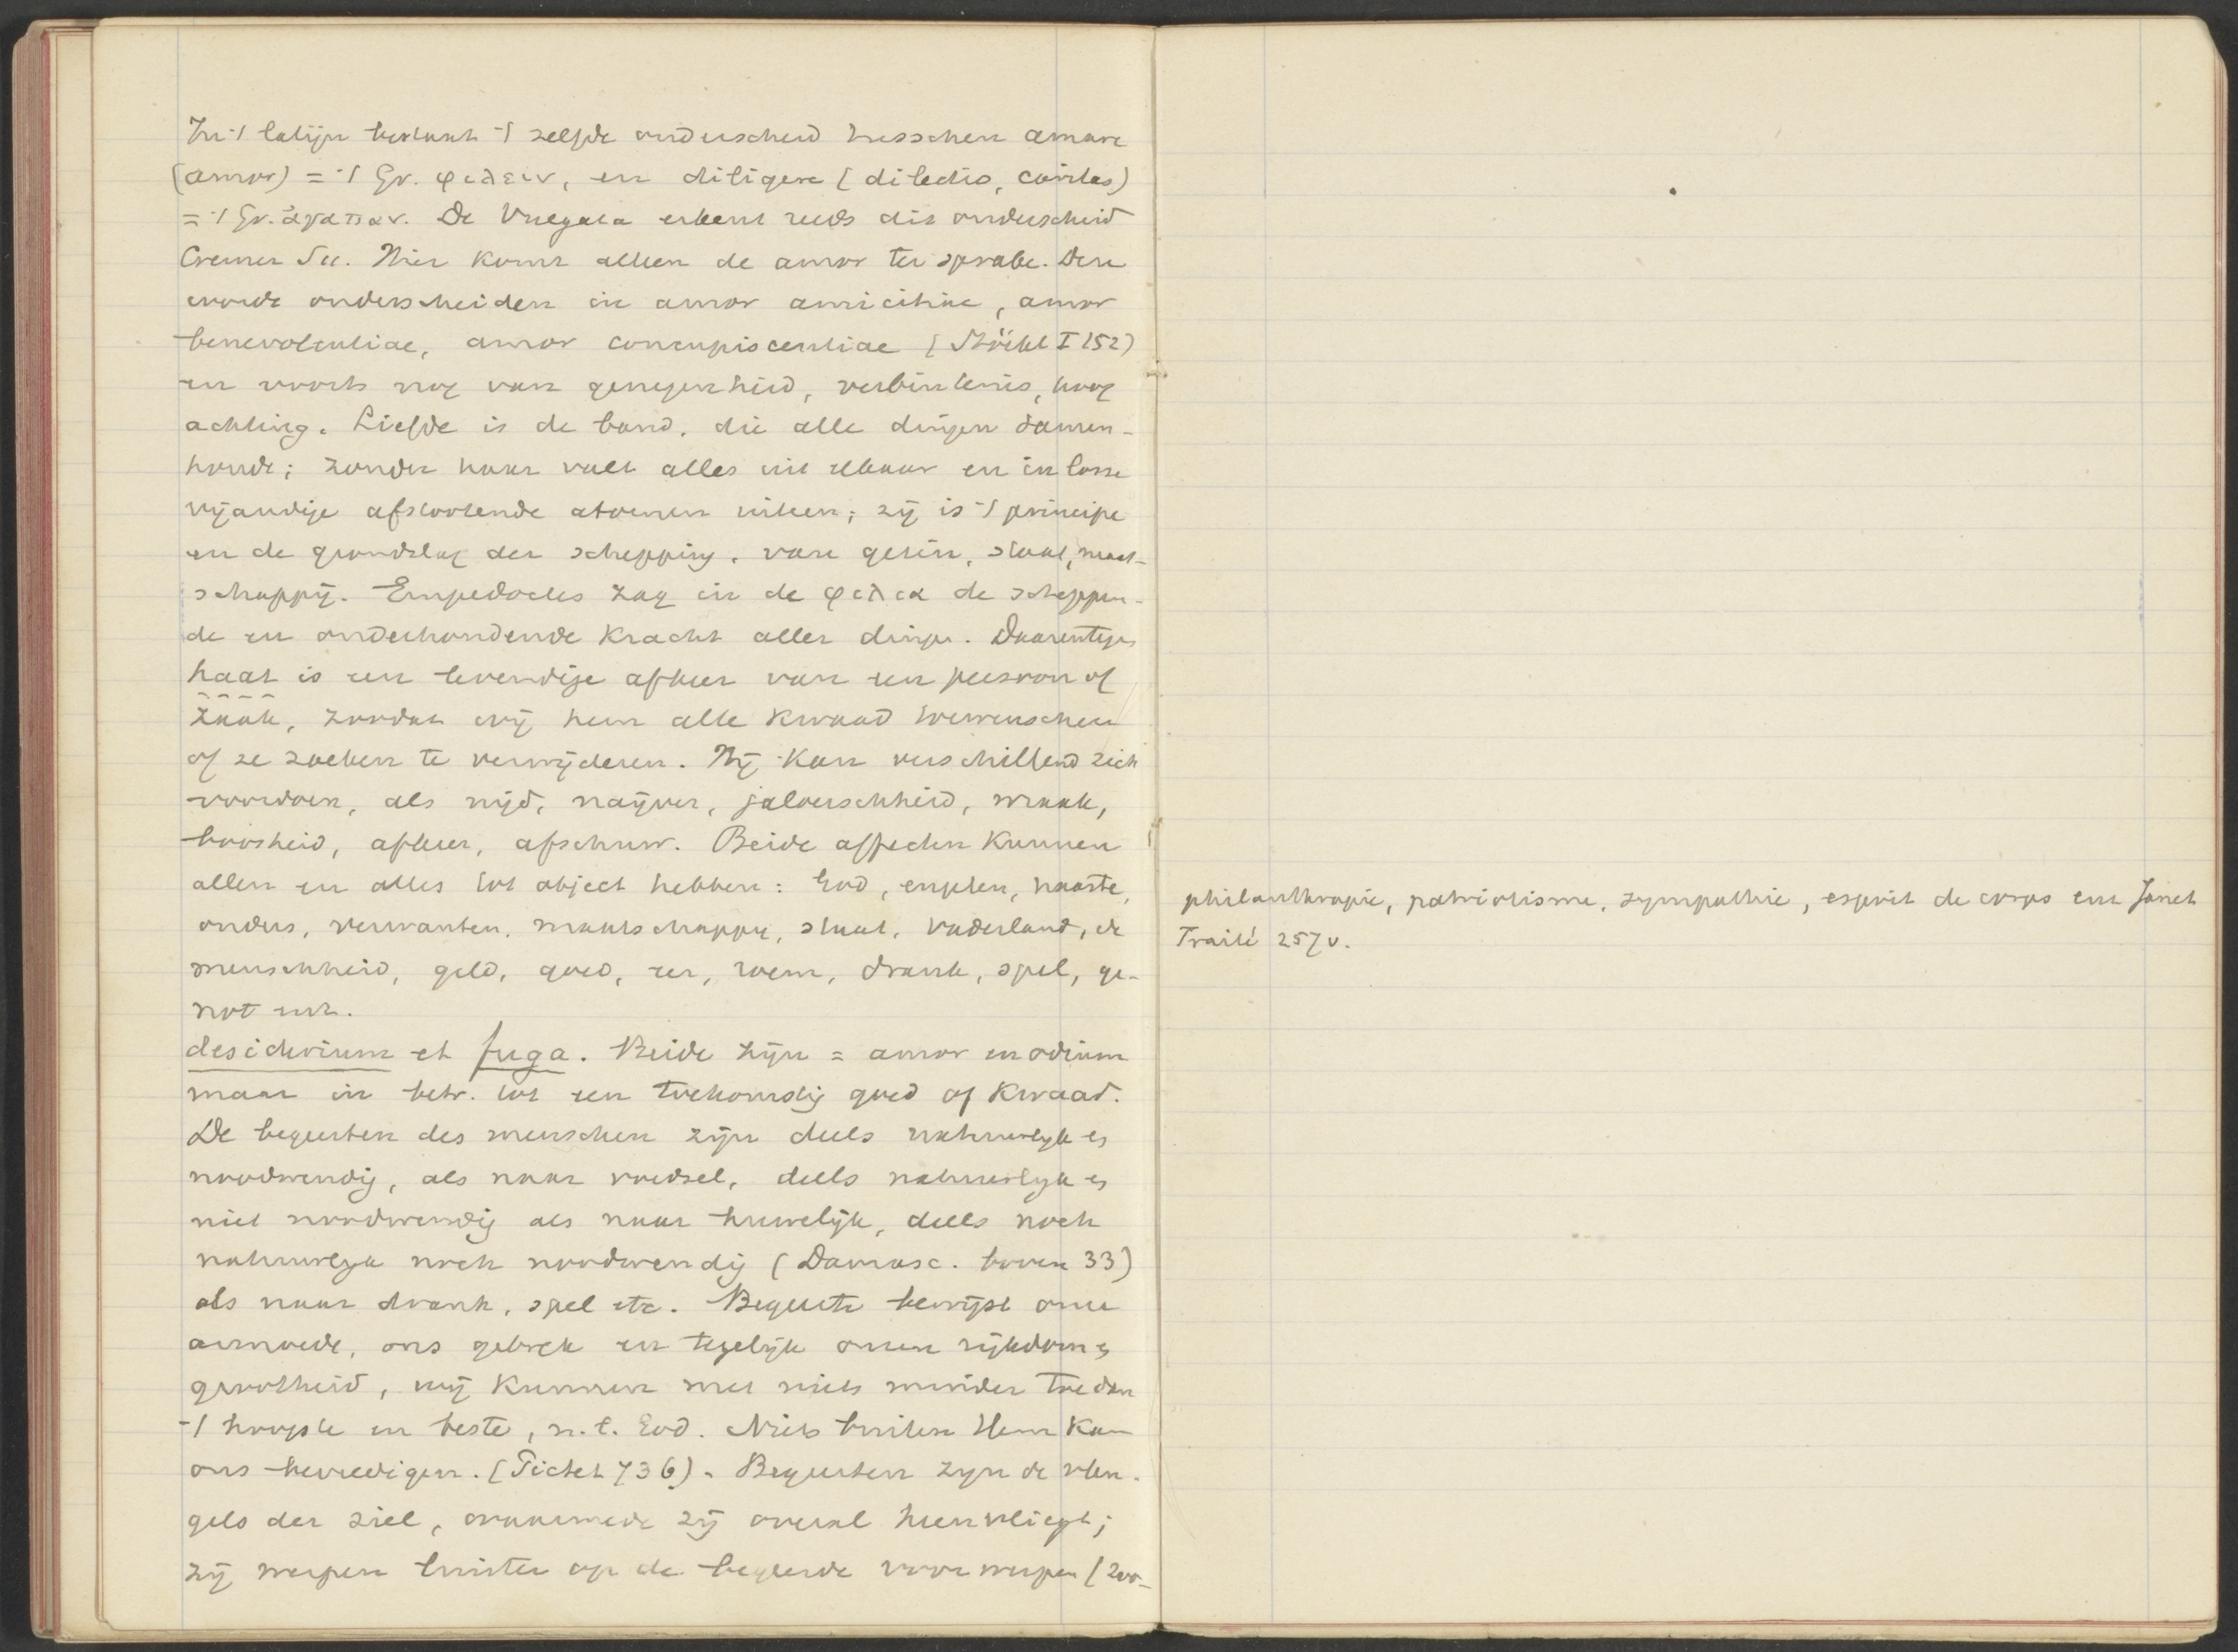 In 't latijn bestaat 't zelfde onderscheid tusschen amare
(amor) = 't Gr. φιλειν, en diligere (dilectio, caritas)
= 't Gr. ἀγαπαν. De Vulgata erkent reeds dit onderscheid
Cremer Hier komt alleen de amor ter sprake. Deze
wordt onderscheiden in amor amicitiae, amor
benevolentiae, amor concupiscentiae (Stöckl I 152)
en voorts nog van genegenheid, verbintenis, hoog
achting. Liefde is de band, die alle dingen samen-
houdt; zonder haar valt alles uit elkaar en in losse
vijandige afstootende atomen uiteen; zij is 't principe
en de grondslag der schepping, van gezin, staat, maat-
schappij. Empedocles zag in de φιλια de scheppen-
de en onderhoudende kracht aller dingen. Daarentegen
haat is een levendige afkeer van een persoon of
zaak, zoodat wij hem alle kwaad toewenschen
of ze zoeken te verwijderen. Hij kan verschillend zich
voordoen, als nijd, naijver, jaloerschheid, wraak,
boosheid, afkeer, afschuw. Beide affecten kunnen
allen en alles tot object hebben: God, engelen, naaste,
ouders, verwanten, maatschappij, staat, vaderland, de
menschheid, geld, goed, eer, roem, drank, spel, ge-
not enz.
desiderium et fuga. Beide zijn = amor en odium
maar in betr. tot een toekomstig goed of kwaad.
De begeerten des menschen zijn deels natuurlijk en
noodwendig, als naar voedsel, deels natuurlijk en
niet noodwendig als naar huwelijk, deels noch
natuurlijk noch noodwendig (Damasc. boven 33)
als naar drank, spel etc. Begeerte bewijst onze
armoede, ons gebrek en tegelijk onzen rijkdom en
grootheid, wij kunnen met niets minder toe dan
't hoogste en beste, n.l. God. Niets buiten Hem kan
ons bevredigen. (Pictet 736). Begeerten zijn de vleu-
gels der ziel, waarmede zij overal heenvliegt;
zij werpen luister op de begeerde voorwerpen (zoo-
philanthropie, patriotisme, sympathie, esprit de corps enz Janet
Traité 257 v.